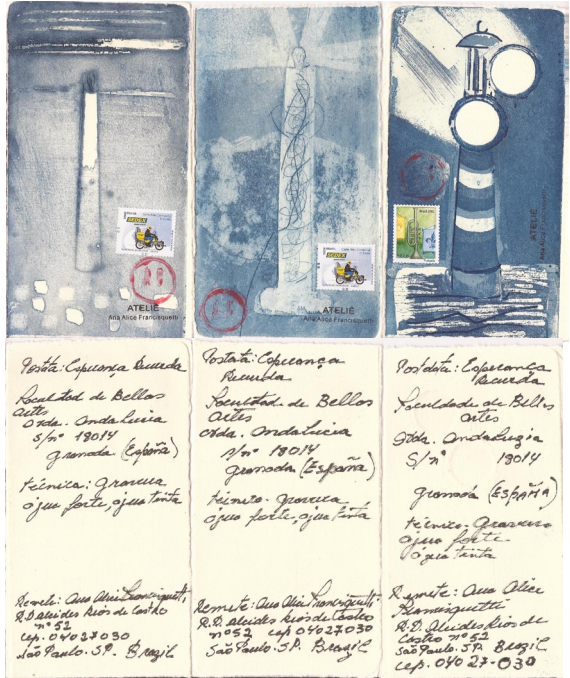 SEDEX
ATELIÊ
Ana Alice Francisquetti
SEDEX
ATELIÊ
Ana Alice Francisquetti
ATELIÊ
Ana Alice Francisquetti
Postata: Esperança Recuerda
Facultad de Bellas
Artes
Avda. Andalucia
S/nº 18014
Granada (España)
técnica: Gravura
água forte, água tinta
Remete: Ana Alice Francisquetti
R.D. Alcides Rios de Castro
nº 52
cep. 04027030
São Paulo. S.P. Brazil
Postata: Esperança
Recuerda
Facultad de Bellas
Artes
Avda. Andalucia
S/nº 18014
Granada (España)
técnica. gravura
água forte, água tinta
Remete: Ana Alice Francisquetti
R.D. Alcides Rios de Castro
nº 52 cep 04027030
São Paulo. S.P. Brasil
Postdata: Esperança
Recuerda
Faculdade de Bellas
Artes
Avda. Andaluzia
S/nº 18014
Granada (España)
técnica. Gravura
água forte
água tinta
Remete: Ana Alice
Francisquetti
R.D. Alcides Rios de
Castro nº 52
São Paulo. S.P. Brazil
cep. 04027-030